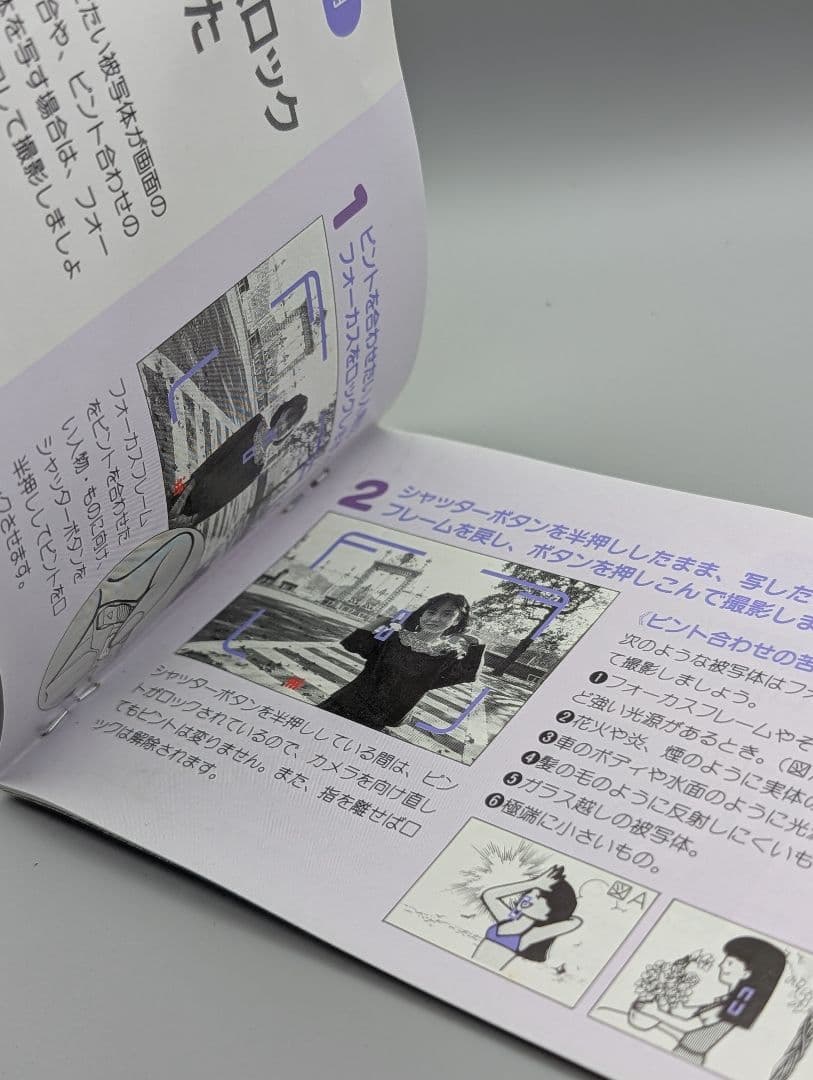 ロック
た
たい被写体が画面の
合や、ピント合わせの
を写す場合は、フォー
して撮影しましょ
1
ピントを合わせたい
フォーカスをロック
フォーカスフレーム
をピントを合わせた
い人物・ものに向け、
シャッターボタンを
半押ししてピントをロ
ックさせます。
2
シャッターボタンを半押ししたまま、写した
フレームを戻し、ボタンを押しこんで撮影しま
シャッターボタンを半押ししている間は、ピン
トがロックされているので、カメラを向け直し
てもピントは変りません。また、指を離せばロ
ックは解除されます。
《ピント合わせの苦
次のような被写体はフォ
て撮影しましょう。
❶フォーカスフレームやそ
ど強い光源があるとき。(図
❷花火や炎、煙のように実体の
❸車のボディや水面のように光
❹髪の毛のように反射しにくいも
❺ガラス越しの被写体。
❻極端に小さいもの。
図A